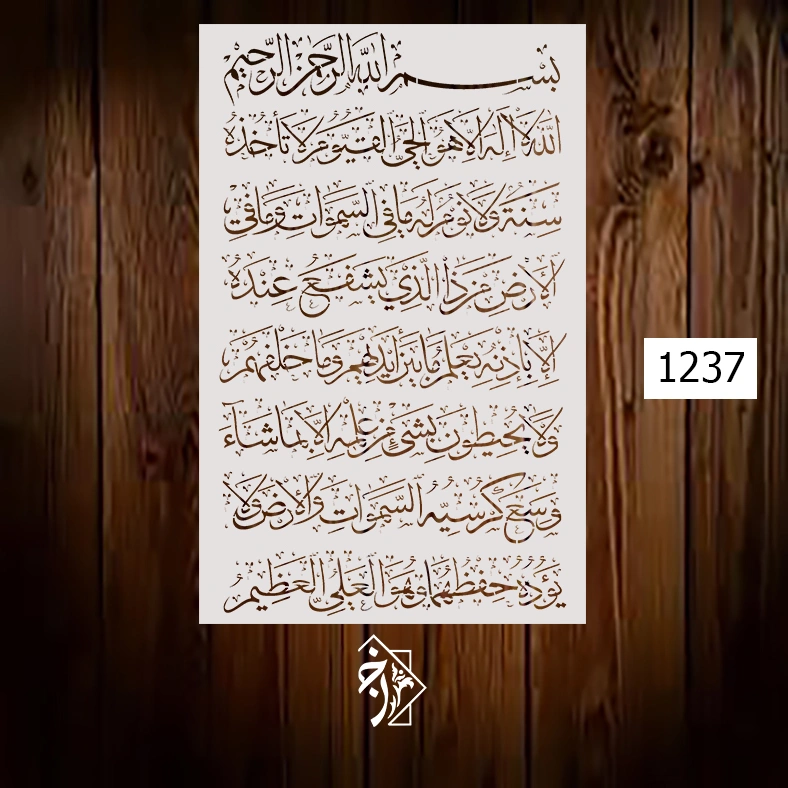 بسم الله الرحمن الرحيم
الله لا إله إلا هو الحي القيوم لا تأخذه
سنة ولا نوم له ما في السموات وما في
الأرض من ذا الذي يشفع عنده
إلا بإذنه يعلم ما بين أيديهم وما خلفهم
ولا يحيطون بشيء من علمه إلا بما شاء
وسع كرسيه السموات والأرض ولا
يؤده حفظهما وهو العلي العظيم
1237